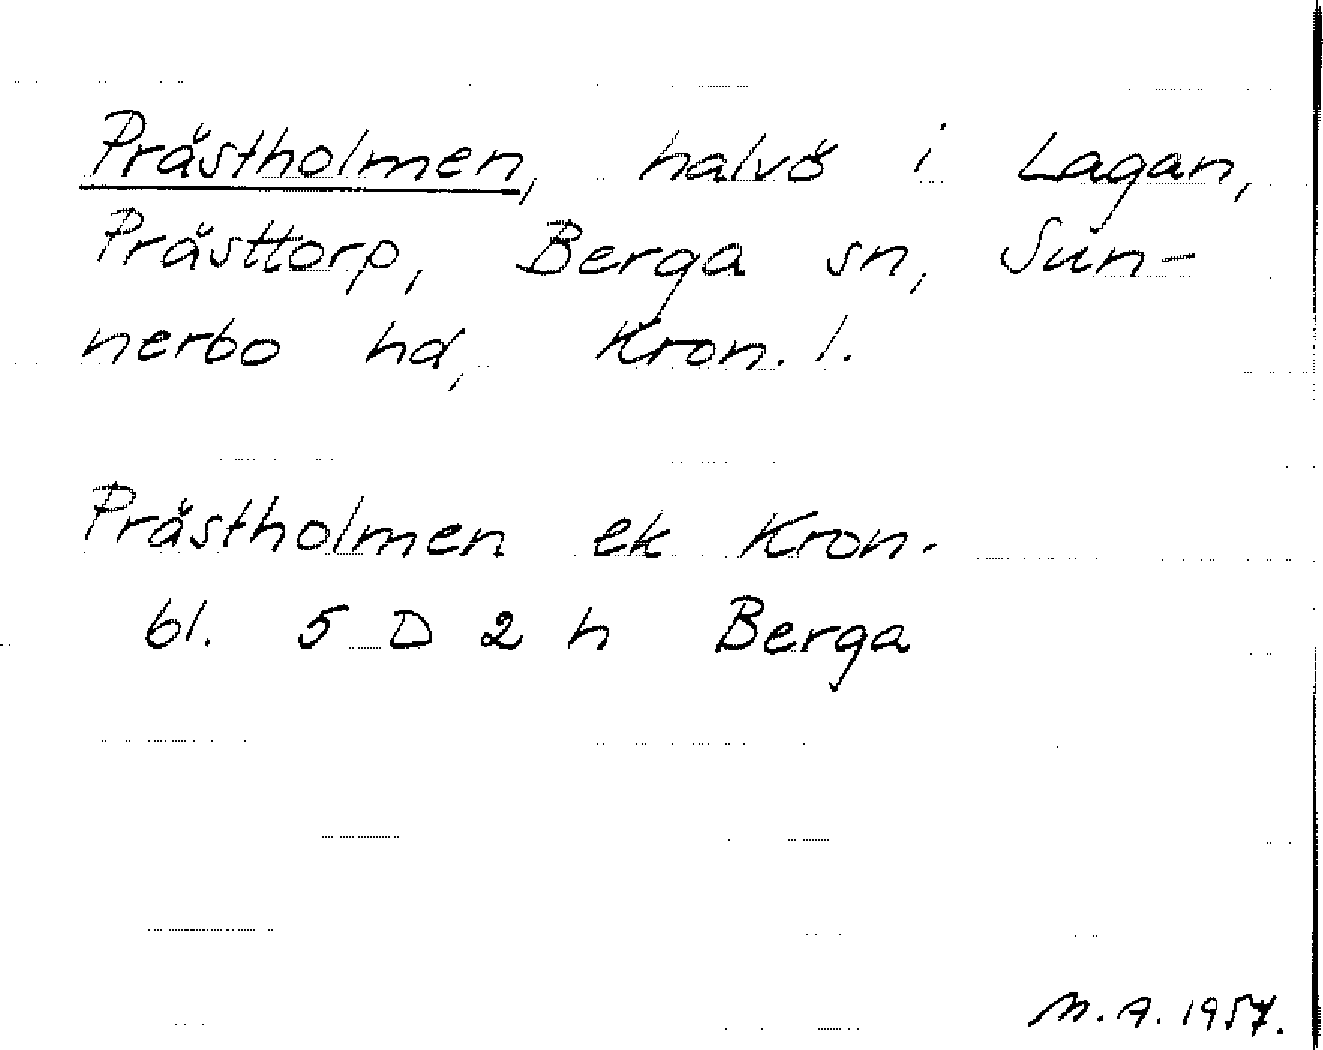 Prästholmen, halvö i Lagan,
Prästtorp, Berga sn, Sun-
nerbo hd, Kron. l.
Prästholmen ek Kron.
bl. 5 D 2 h Berga
M. A. 1957.